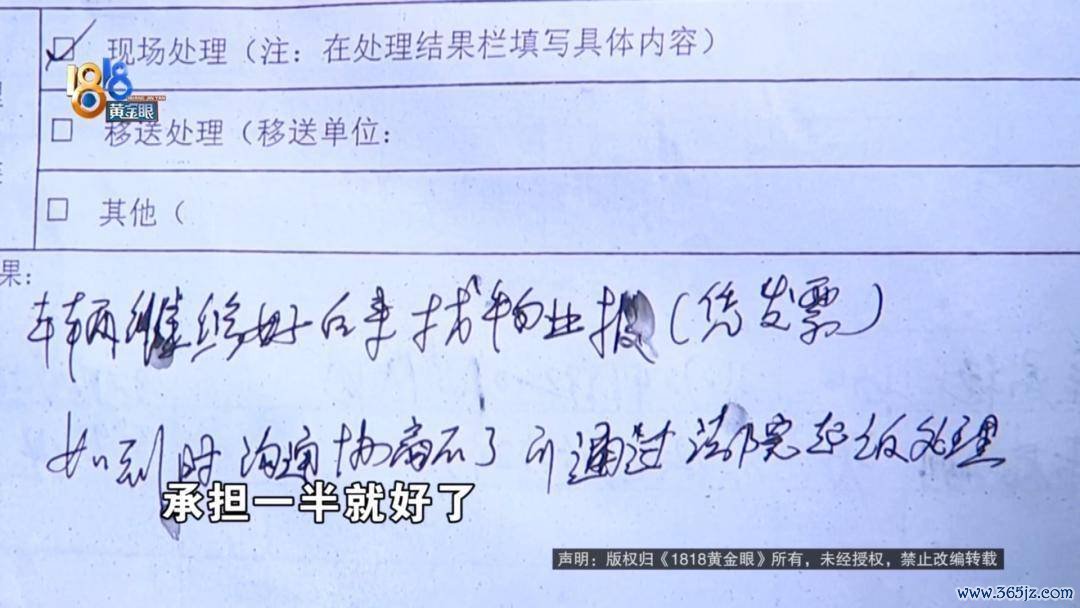 ☑ 现场处理（注：在处理结果栏填写具体内容）
1818
黄金眼
□ 移送处理（移送单位:
□ 其他（
果:
车辆维修好后来找物业报（凭发票）
如到时沟通协商不了可通过法院起诉处理
承担一半就好了
声明：版权归《1818黄金眼》所有，未经授权，禁止改编转载
www.365jz.com